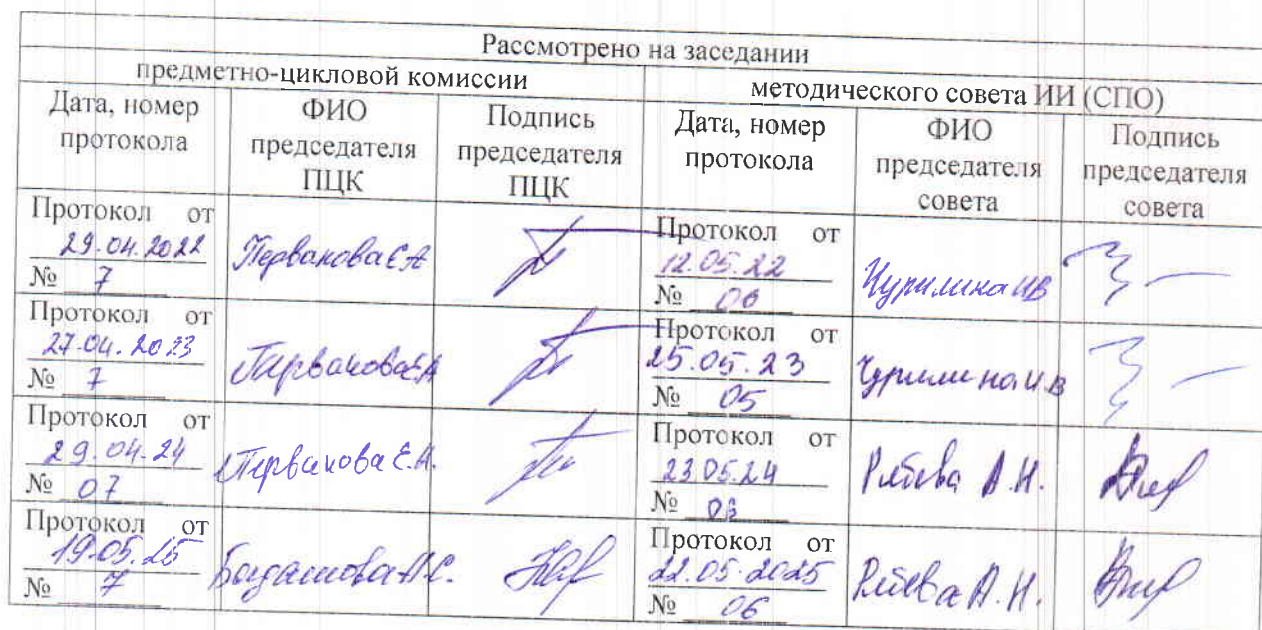 Рассмотрено на заседании
предметно-цикловой комиссии
методического совета ИИ (СПО)
Дата, номер протокола
ФИО председателя ПЦК
Подпись председателя ПЦК
Дата, номер протокола
ФИО председателя совета
Подпись председателя совета
Протокол от
29.04.2022
№ 7
Перванова Е А
Протокол от
12.05.22
№ 06
Чурилина ИВ
Протокол от
27.04.2023
№ 7
Перванова ЕА
Протокол от
25.05.23
№ 05
Чурилина И.В
Протокол от
29.04.24
№ 07
Перванова Е.А.
Протокол от
23.05.24
№
А.Н.
Протокол от
19.05.25
№ 7
Протокол от
22.05.2025
№ 06
А.Н.